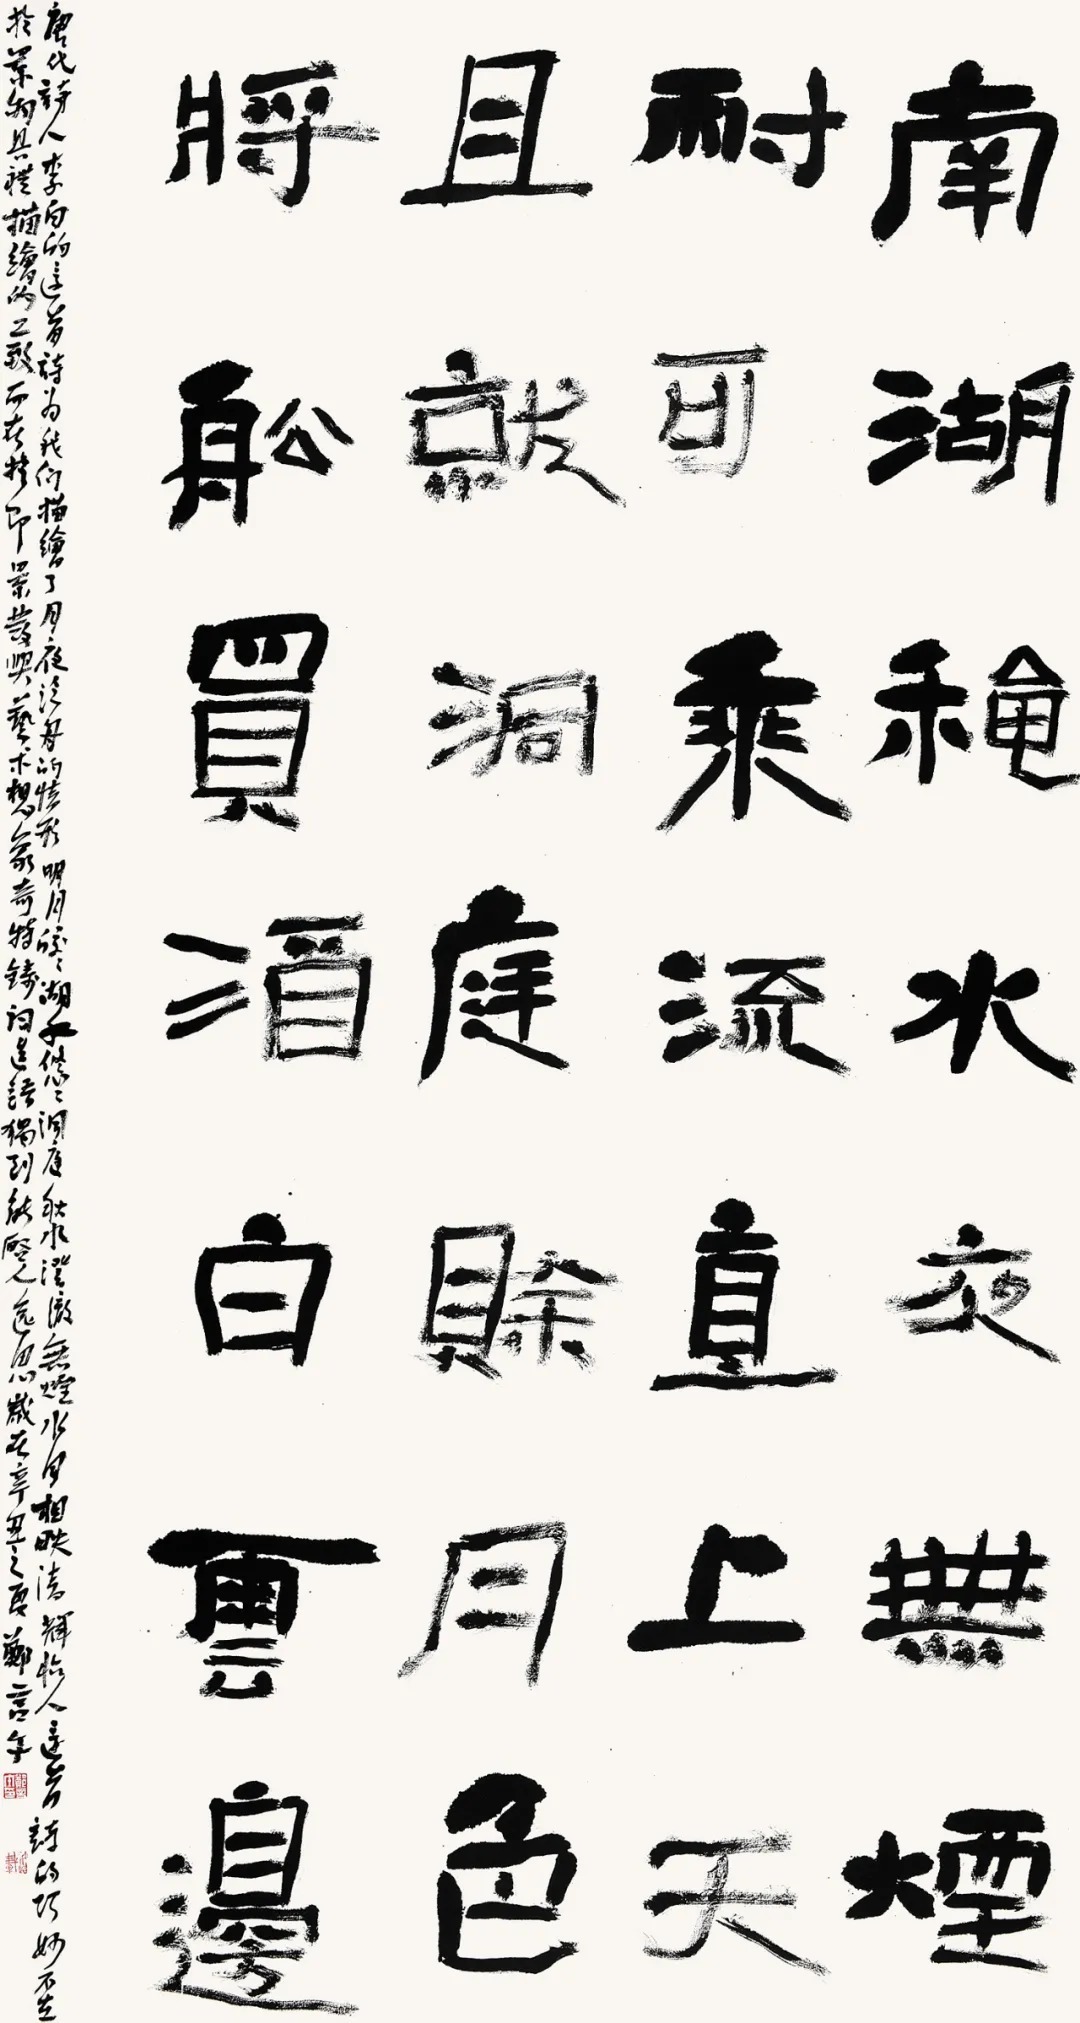 南湖穐水夜無煙
耐可乘流直上天
且就洞庭賒月色
將舩買酒白雲邊
唐代詩人李白的這首詩为我们描繪了月夜泛舟的情形明月皎〻湖水悠〻洞庭秋水澄澈無煙水月相映清輝怡人這首詩的巧妙不在
於景物具體描繪的工致而在於即景發興藝术想象奇特鑄詞造語獨到能啓人遠思歲在辛丑之夏鄭言年